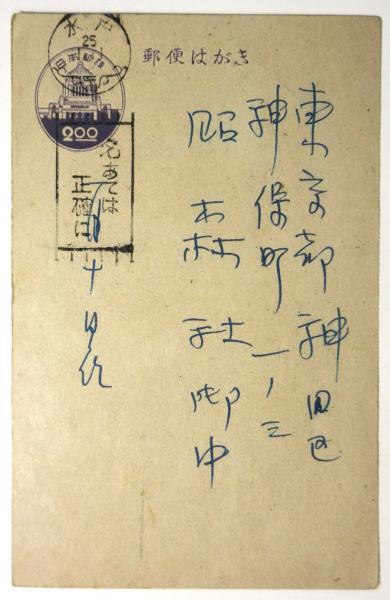 郵便はがき
水戸
25
日本郵便
2.00
あては
正確に
東京都神田区
神保町一ノ三
昭森社御中
十日